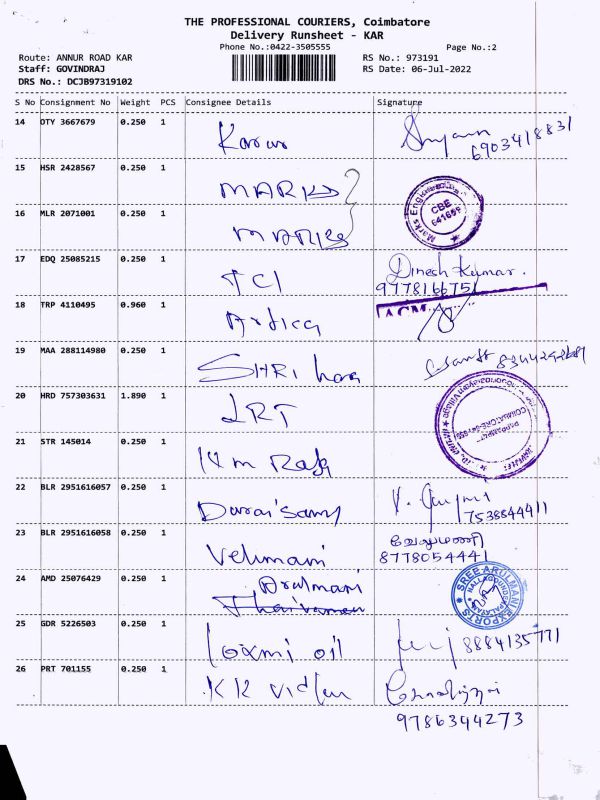 THE PROFESSIONAL COURIERS, Coimbatore
Delivery Runsheet - KAR
Phone No.:0422-3505555 Page No.:2
Route: ANNUR ROAD KAR RS No.: 973191
Staff: GOVINDRAJ RS Date: 06-Jul-2022
DRS No.: DCJB97319102
S No Consignment No Weight PCS Consignee Details Signature
14 OTY 3667679 0.250 1 Karur 6903418831
15 HSR 2428567 0.250 1 MARKS
16 MLR 2071001 0.250 1 MARKS
Marks CBE 641659
17 EDQ 25085215 0.250 1 TCI Dinesh Kumar.
9778166751
18 TRP 4110495 0.960 1 Ardica
19 MAA 288114980 0.250 1 SHRI hara
20 HRD 757303631 1.890 1 LRT
21 STR 145014 0.250 1 KM Raja
22 BLR 2951616057 0.250 1 Duraisamy
7538844411
23 BLR 2951616058 0.250 1 Velumani வேலுமணி
8778054441
24 AMD 25076429 0.250 1 Arulmani
SREE ARULMANI EXPORTS
NALLAGOUNDENPALAYAM
25 GDR 5226503 0.250 1 loxmi oil 8884135771
26 PRT 701155 0.250 1 KR
9786344273